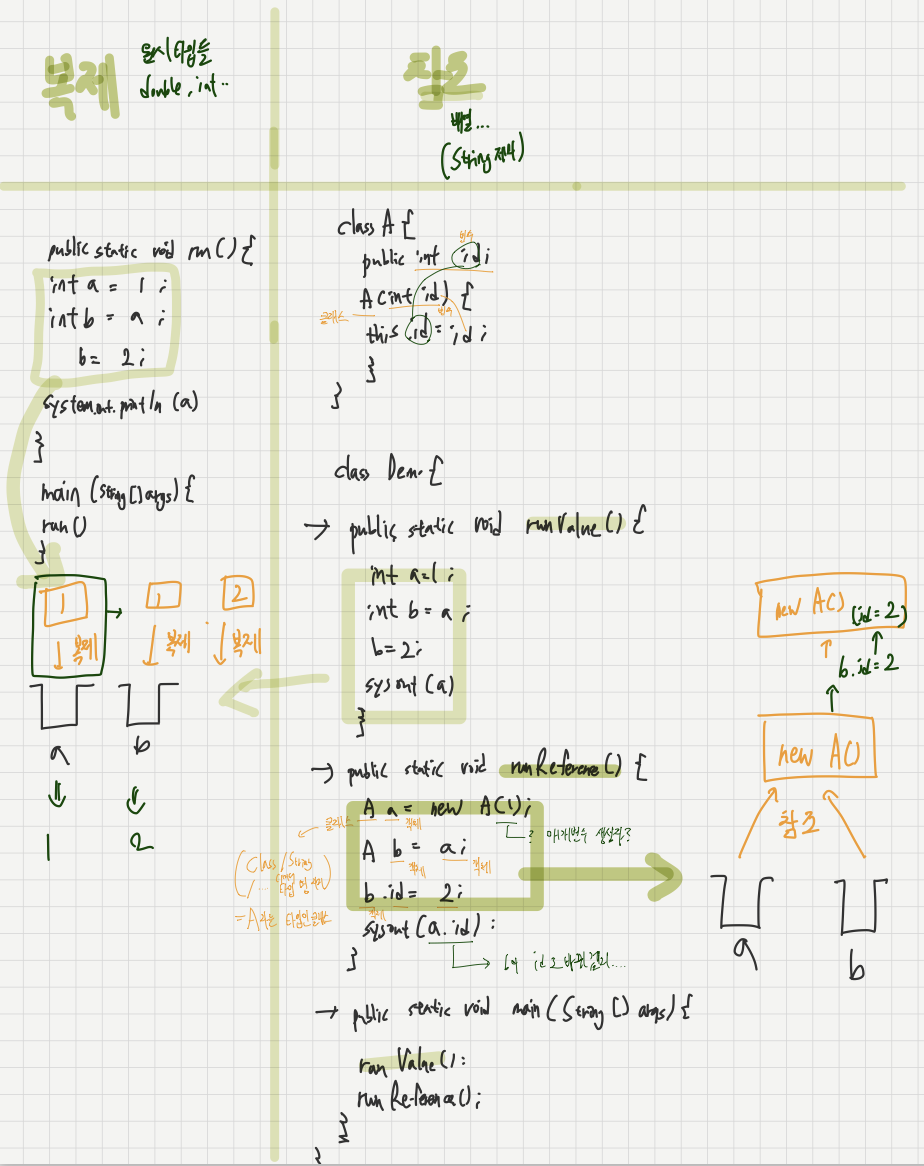 복제
원시타입들
double, int ..
참조
배열...
(String 제외)
public static void run() {
int a = 1 ;
int b = a ;
b = 2 ;
system.out.println (a)
}
main (String [] args) {
run()
}
1
1
2
복제
복제
복제
a
b
1
2
class A {
변수
public int id ;
A (int id) {
클래스
변수
this .id = id ;
}
}
class Demo {
→ public static void runValue () {
int a=1 ;
int b = a ;
b=2 ;
sysout (a)
}
→ public static void runReference () {
A a = new A(1) ;
클래스
객체
? 매개변수 생성자?
A b = a ;
객체
객체
(Class / String
= A라는 타입인 클래스
b .id = 2 ;
객체
sysout (a.id) :
}
→ public static void main (String [] args) {
run Value () :
run Reference() ;
}
}
new A() (id = 2)
b.id = 2
new A()
참조
a
b